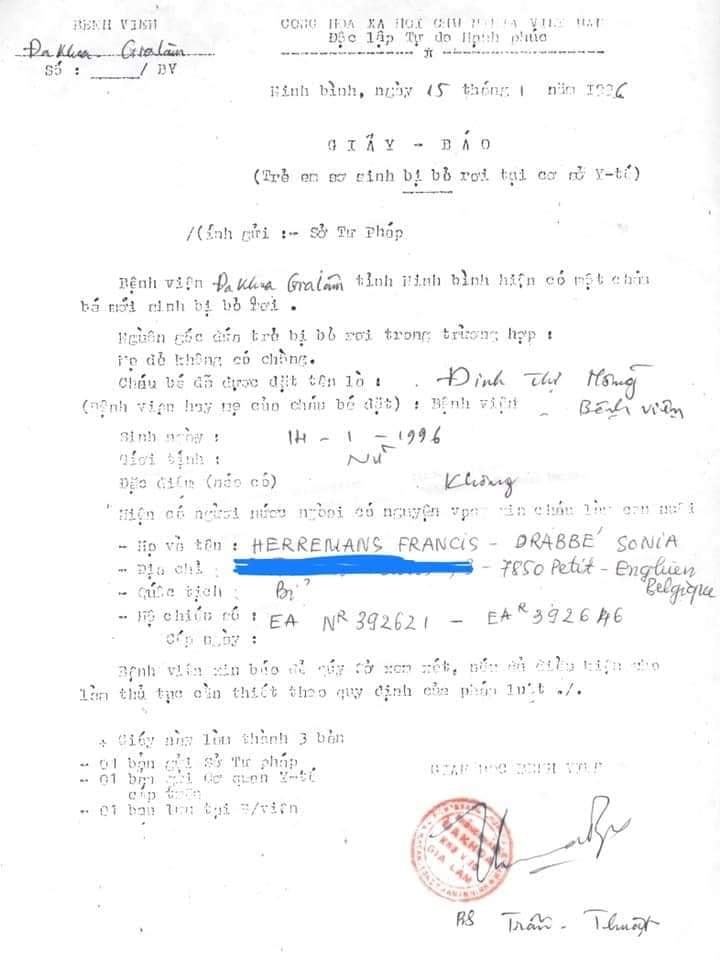 BỆNH VIỆN
Đa Khoa Gialâm
Số : ____/ BV
CỘNG HÒA XÃ HỘI CHỦ NGHĨA VIỆT NAM
Độc lập Tự do Hạnh phúc
Ninh bình, ngày 15 tháng 1 năm 1996
GIẤY - BÁO
(Trẻ em sơ sinh bị bỏ rơi tại cơ sở Y-tế)
/(ính gửi :- Sở Tư Pháp
Bệnh viện Đa Khoa Gialâm tỉnh Ninh bình hiện có một cháu
bé mới sinh bị bỏ rơi .
Nguồn gốc dẫn trẻ bị bỏ rơi trong trường hợp :
Mẹ đẻ không có chồng.
Cháu bé đã được đặt tên là : Đinh Thị Hồng
(Bệnh viện hay mẹ của cháu bé đặt) : Bệnh viện Bệnh viện
Sinh ngày : 14 - 1 - 1996
Giới tính : Nữ
Đặc điểm (nếu có) Không
Hiện có người nước ngoài có nguyện vọng xin cháu làm con nuôi
- Họ và tên : HERREMANS FRANCIS - DRABBÉ SONIA
- Địa chỉ : - 7850 Petit - Enghien
Belgique
- Quốc tịch : Bỉ
- Hộ chiếu số : EA NR 392621 - EA R 392646
Cấp ngày :
Bệnh viện xin báo để qúy Sở xem xét, nếu đủ điều kiện cho
làm thủ tục cần thiết theo quy định của pháp luật ./.
+ Giấy này làm thành 3 bản
- 01 bản gửi Sở Tư pháp
- 01 bản gửi Cơ quan Y-tế
cấp trên
- 01 bản lưu tại B/viện
GIÁM ĐỐC BỆNH VIỆN
ĐA KHOA
KHU V
GIA LÂM
BS Trần - Thuật